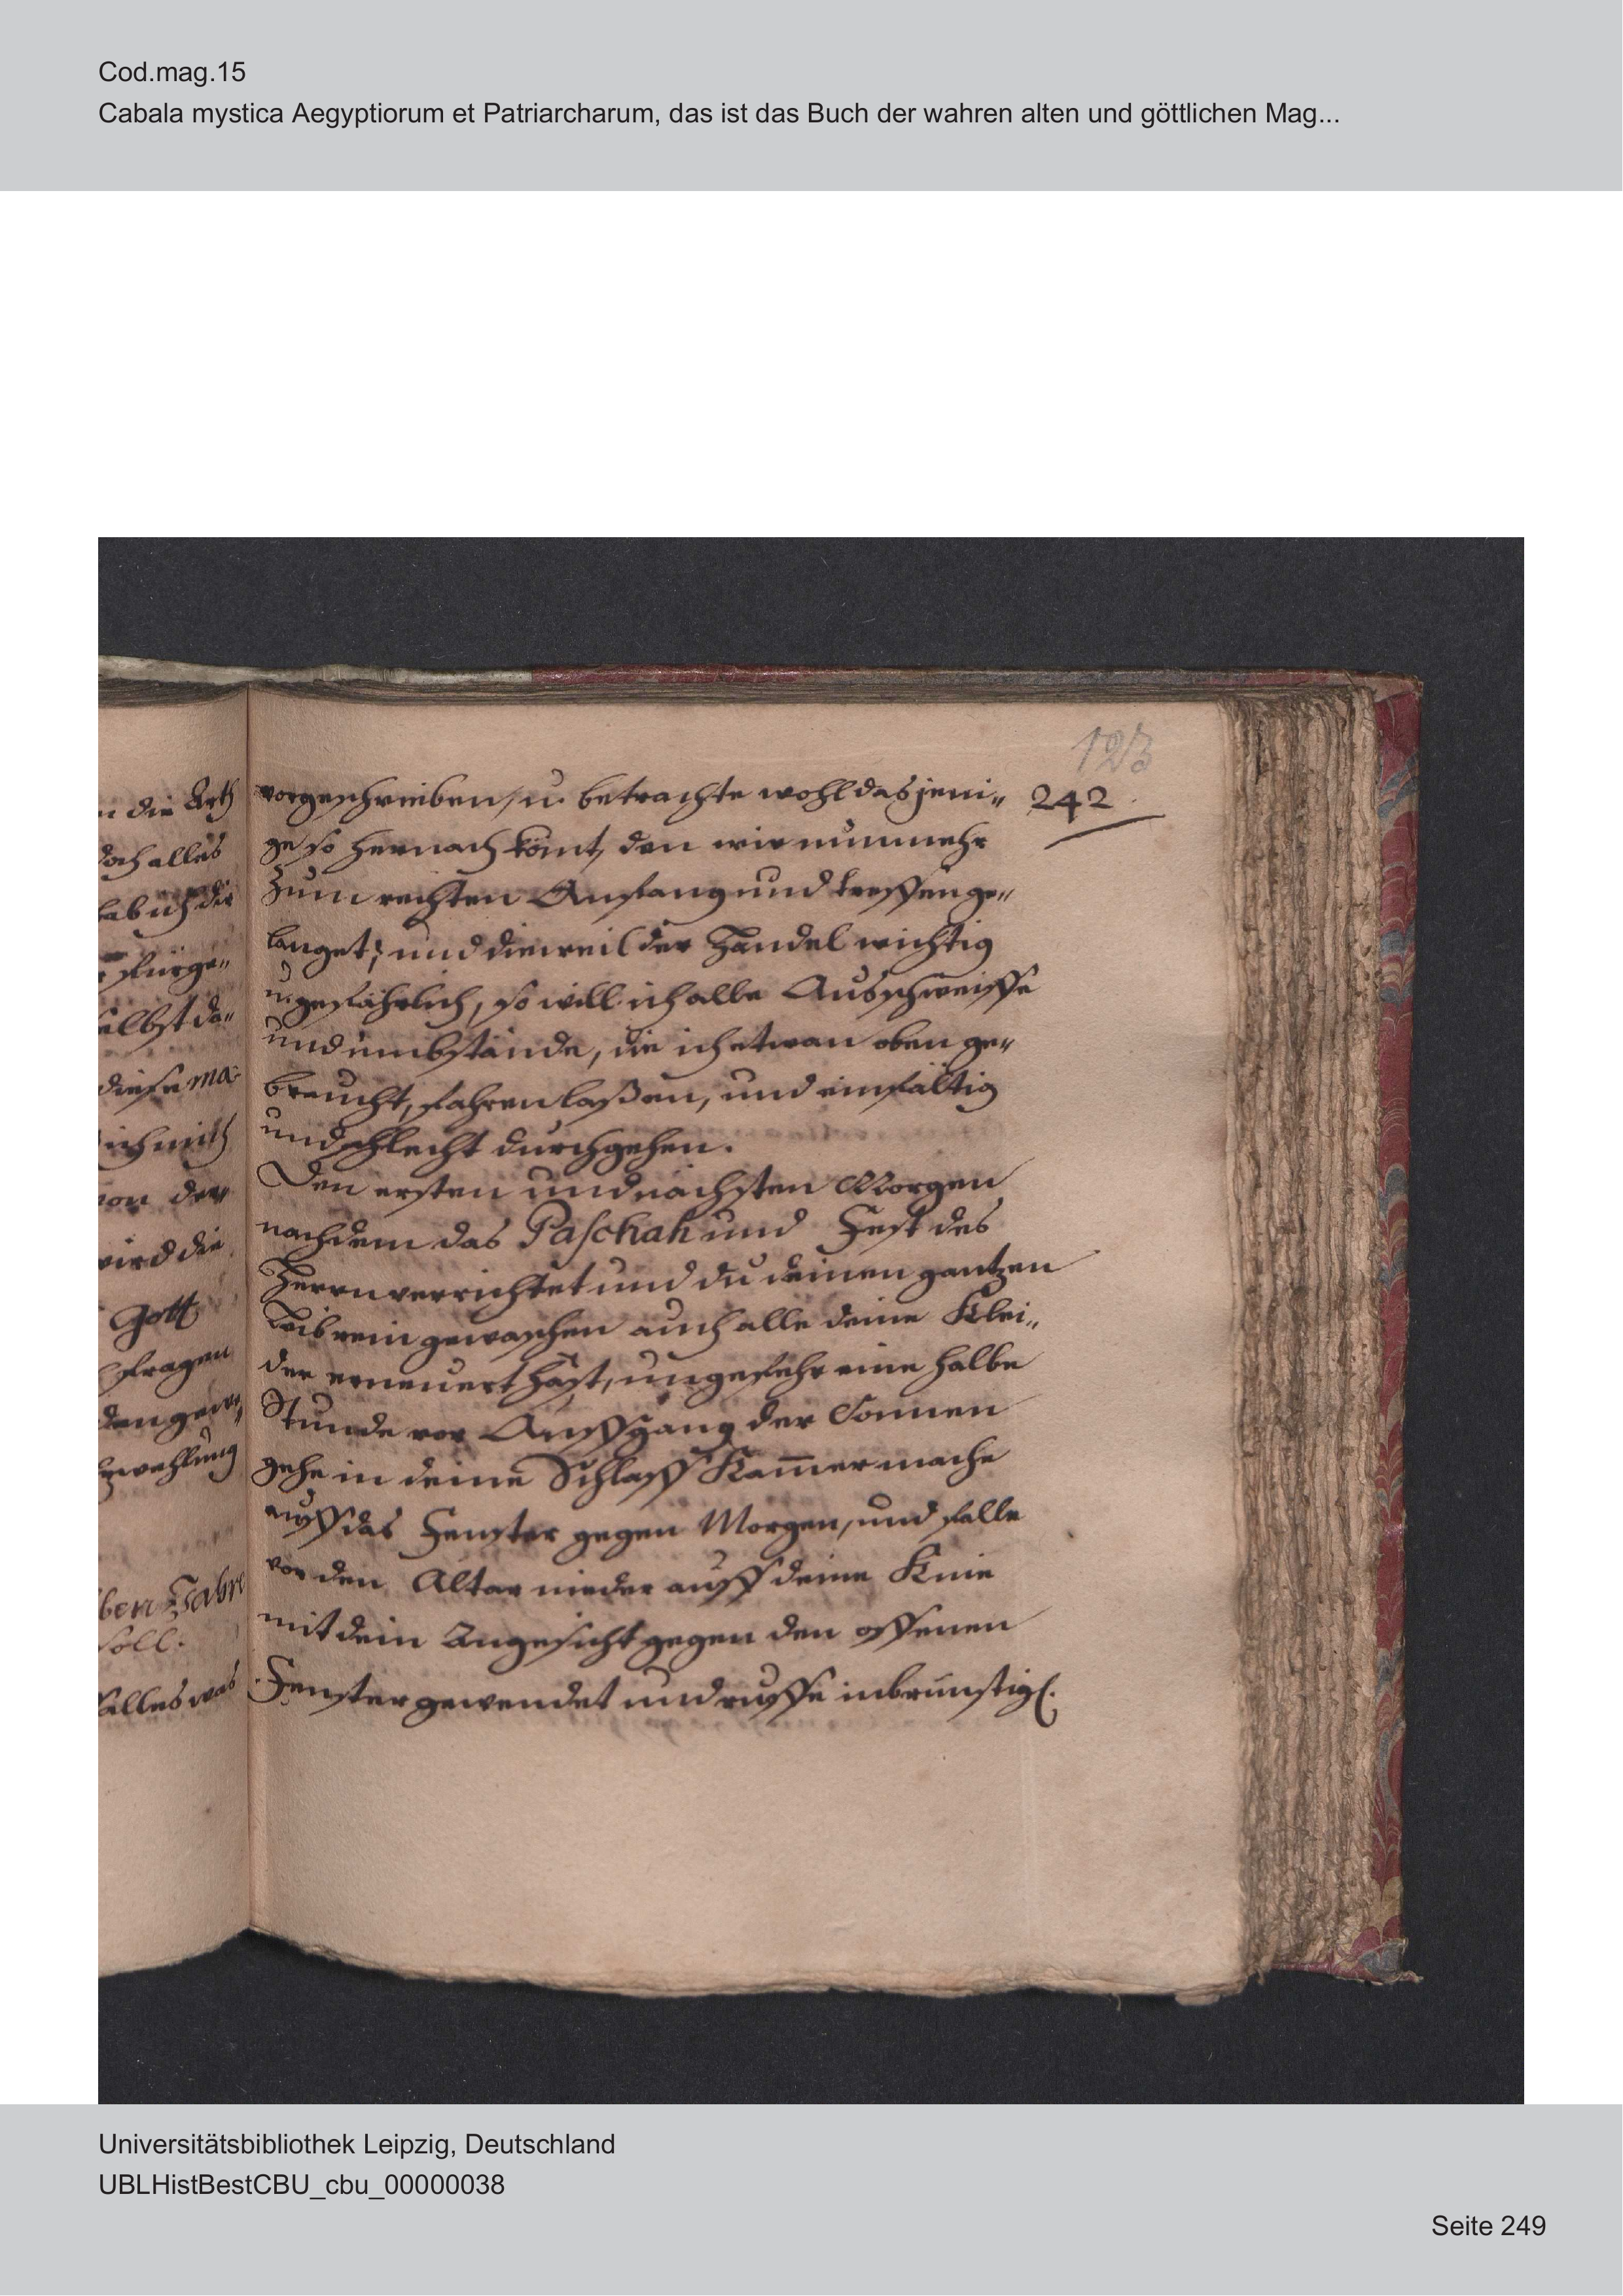 Cod.mag.15
Cabala mystica Aegyptiorum et Patriarcharum, das ist das Buch der wahren alten und göttlichen Mag...
123
242.
n die Arth
doch alles
hab ich dir
fürge„
selbst da„
diese ma-
ich mich
von der
wird die
Gott
fragen
den gewe„
zwehlung
ben Jahre
soll.
alles was
vorgeschrieben, u. betrachte wohl das jeni„
ge so hernach kömt, den wir nunmehr
zum rechten Anfang und treffen ge„
langet; und dieweil der Handel wichtig
u. gefährlich, so will ich alle Ausschweiffe
und umbstände, die ich etwan oben ge„
braucht, fahren laßen, und einfältig
und schlecht durchgehen.
Den ersten und nächsten Morgen
nachdem das Paschah und Fest des
Herrn verrichtet und du deinen gantzen
Leib rein gewaschen auch alle deine Klei„
der erneuert hast, ungefehr eine halbe
Stunde vor Auffgang der Sonnen
gehe in deine Schlaff Kam̅er mache
auff das Fenster gegen Morgen, und falle
vor den Altar nieder auff deine Knie
mit dein Angesicht gegen den offenen
Fenster gewendet und ruffe inbrünstigl.
Universitätsbibliothek Leipzig, Deutschland
UBLHistBestCBU_cbu_00000038
Seite 249